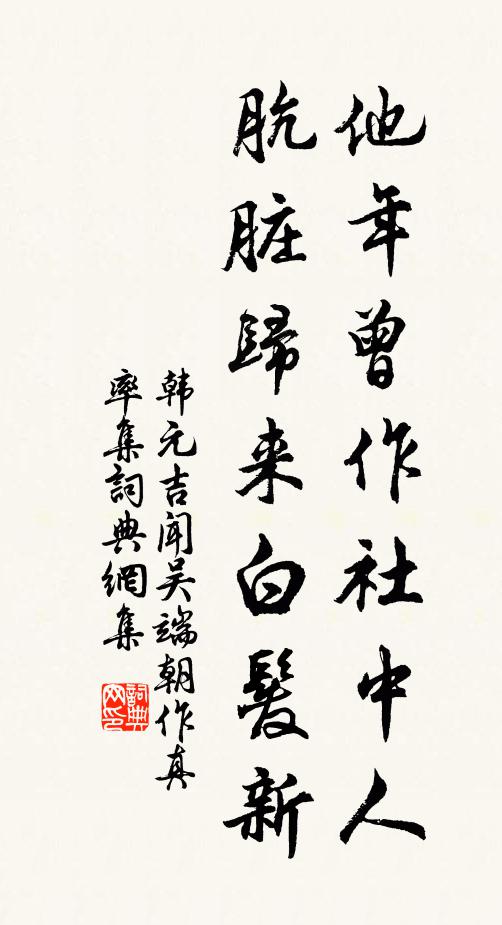 他年曾作社中人
肮脏歸来白髮新
韩元吉闻吴端朝作真
率集詞典網集
詞典網印